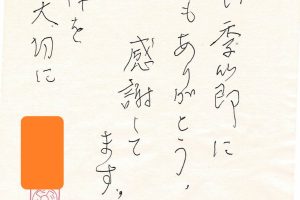 い季節に
もありがとう、
感謝して
ます。
体を
大切に